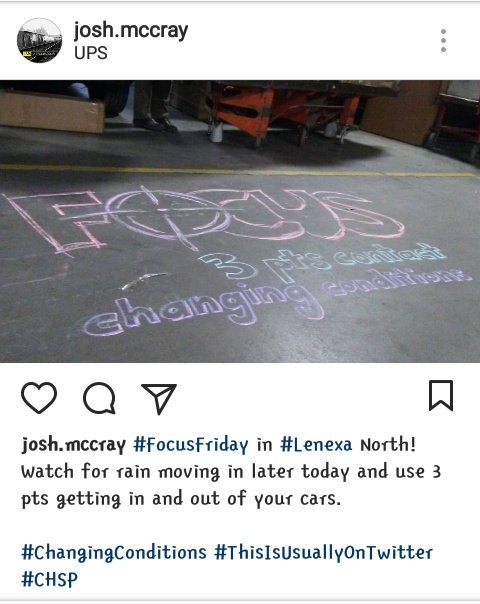 josh.mccray
UPS
FOCUS
3 pts contact
changing conditions
josh.mccray #FocusFriday in #Lenexa North!
Watch for rain moving in later today and use 3
pts getting in and out of your cars.
#ChangingConditions #ThisIsUsuallyOnTwitter
#CHSP